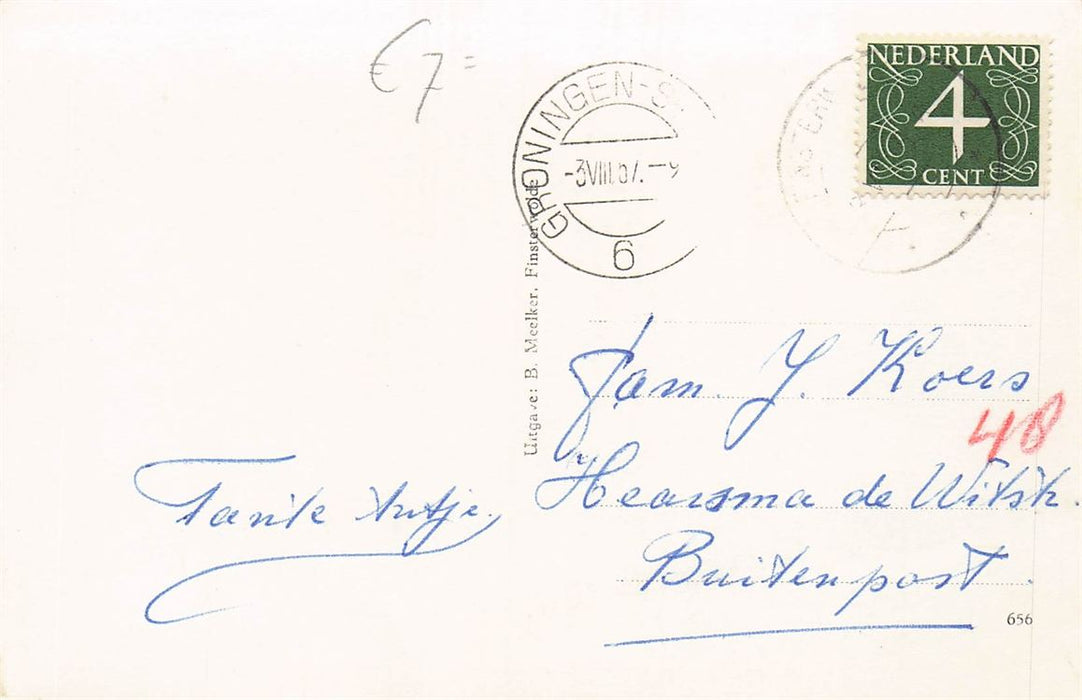 € 7=
GRONINGEN-S
-3VIII.67.-9
6
NEDERLAND
4
CENT
Uitgave: B. Meelker, Finsterwolde
Fam. J. Koers
48
Haersma de Witstr.
Buitenpost.
Tante Antje.
656